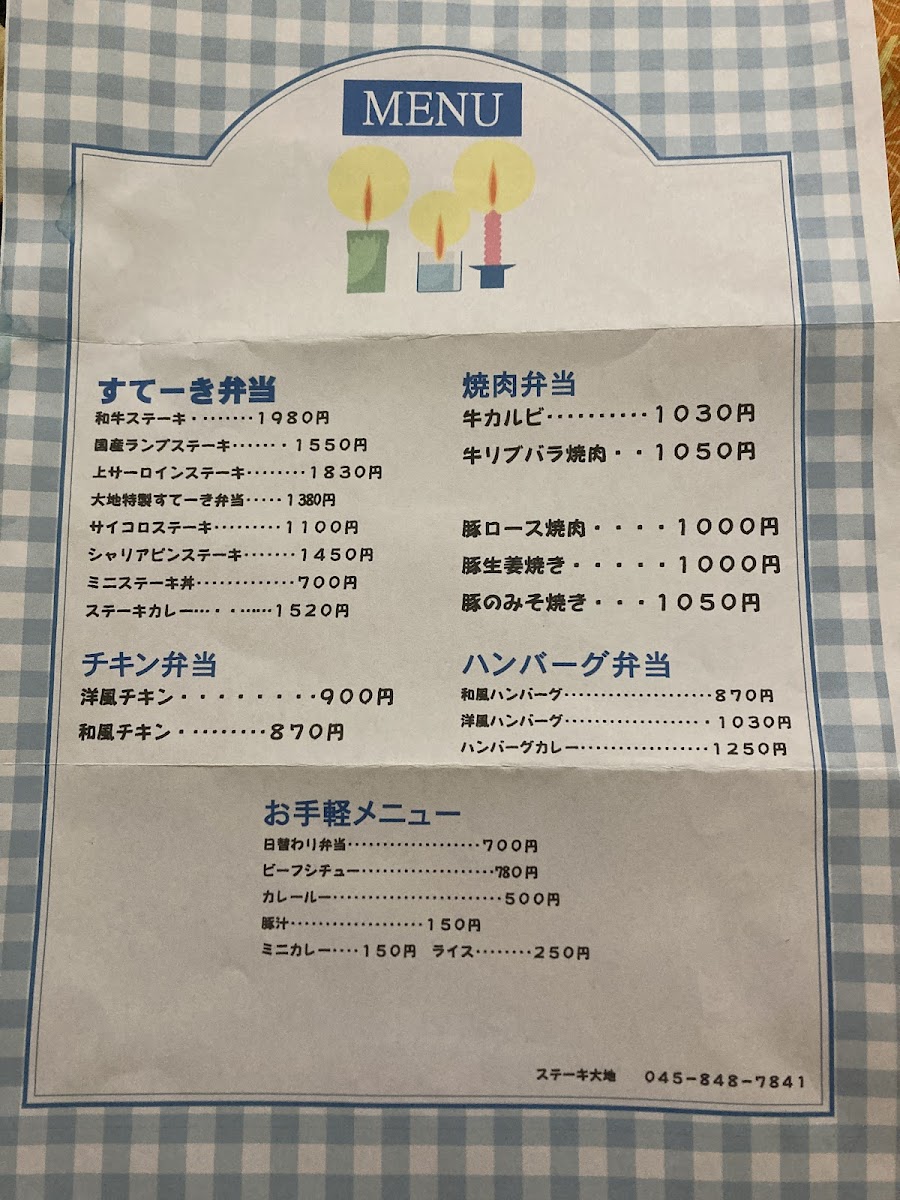 MENU
すてーき弁当
和牛ステーキ・・・・・・・・1980円
国産ランプステーキ・・・・・・・1550円
上サーロインステーキ・・・・・・・・1830円
大地特製すてーき弁当・・・・・1380円
サイコロステーキ・・・・・・・・・1100円
シャリアピンステーキ・・・・・・・1450円
ミニステーキ丼・・・・・・・・・・・・・700円
ステーキカレー…・・……1520円
焼肉弁当
牛カルビ・・・・・・・・・・1030円
牛リブバラ焼肉・・1050円
豚ロース焼肉・・・・1000円
豚生姜焼き・・・・・1000円
豚のみそ焼き・・・1050円
チキン弁当
洋風チキン・・・・・・・・・900円
和風チキン・・・・・・・・・870円
ハンバーグ弁当
和風ハンバーグ・・・・・・・・・・・・・・・・・・・・870円
洋風ハンバーグ・・・・・・・・・・・・・・・・・・・1030円
ハンバーグカレー・・・・・・・・・・・・・・・・・1250円
お手軽メニュー
日替わり弁当・・・・・・・・・・・・・・・・・・・700円
ビーフシチュー・・・・・・・・・・・・・・・・・・・780円
カレールー・・・・・・・・・・・・・・・・・・・・・・・・500円
豚汁・・・・・・・・・・・・・・・・・・・150円
ミニカレー・・・・150円 ライス・・・・・・・・250円
ステーキ大地 045-848-7841